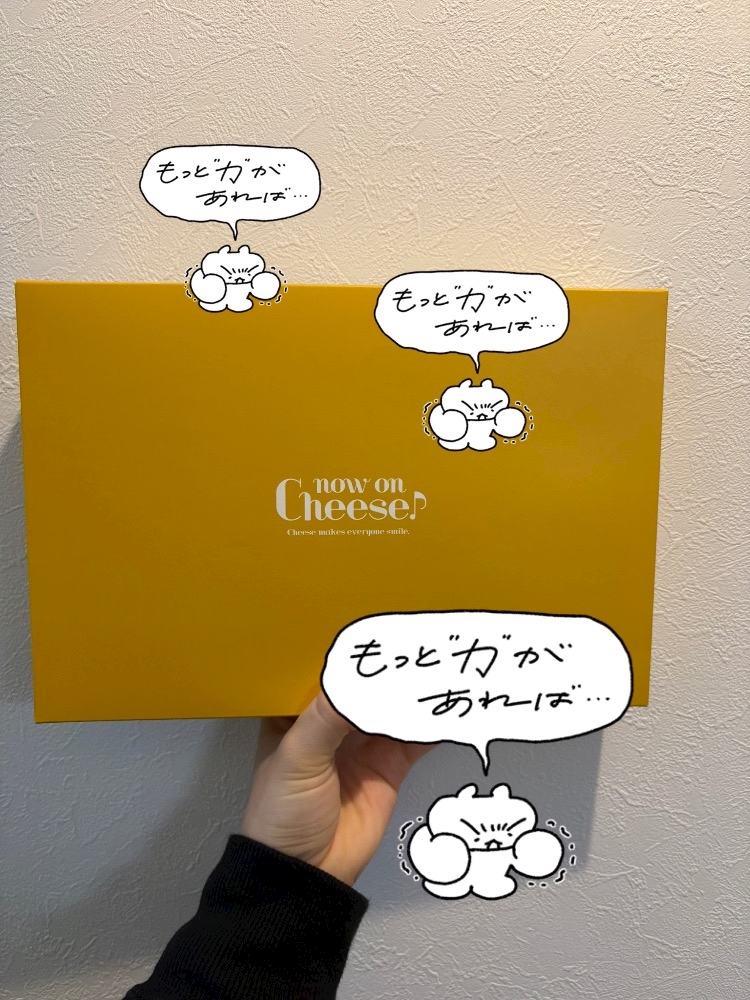 もっど"力"が
あれば…
もっど"力"が
あれば…
now on
Cheese♪
Cheese makes everyone smile.
もっど"力"が
あれば…